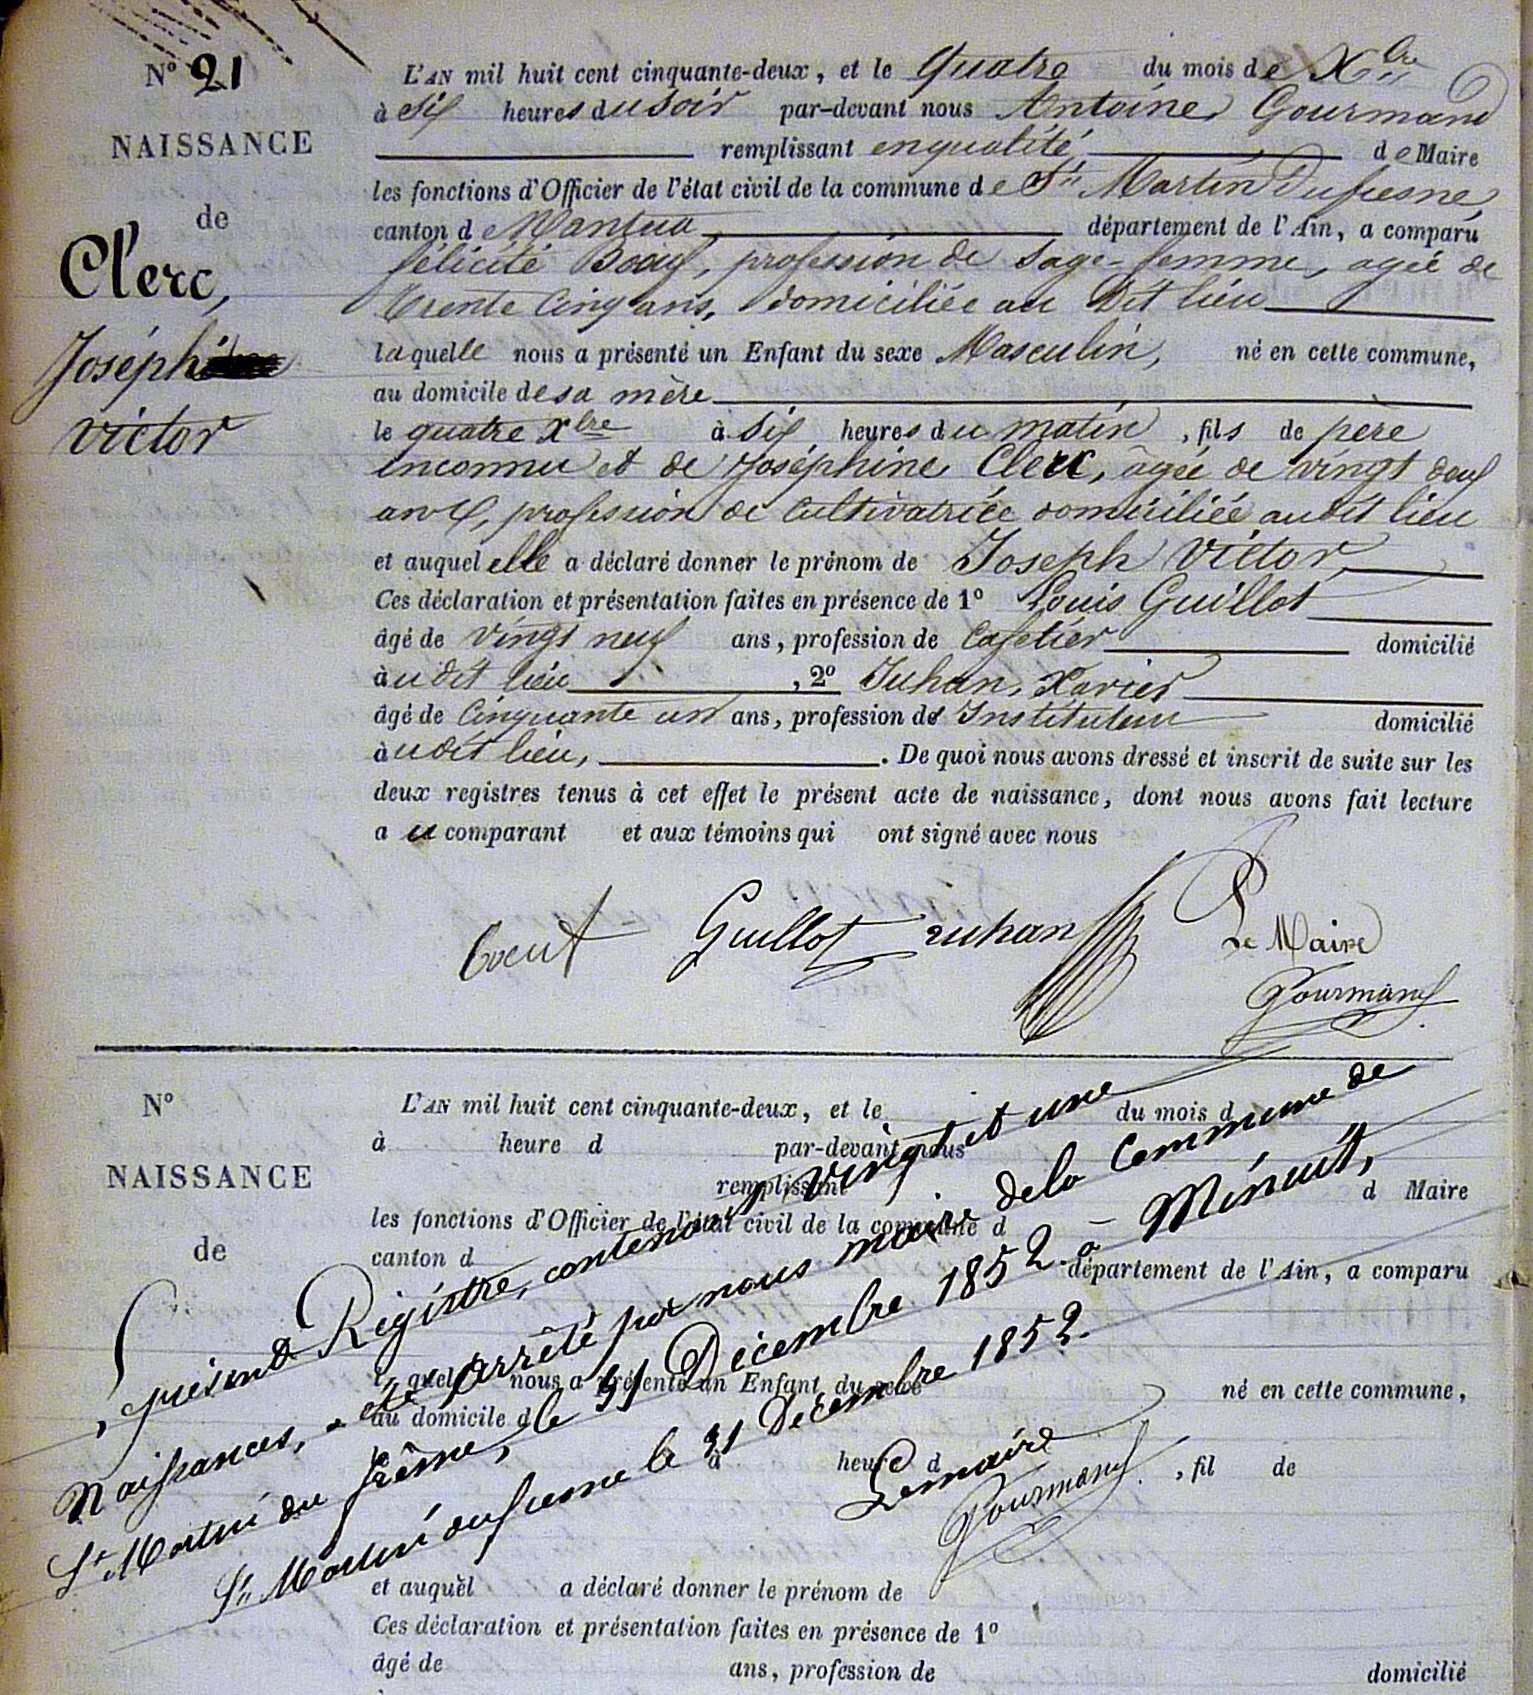 N° 21
NAISSANCE
de
Clerc,
Joseph
Victor
L'AN mil huit cent cinquante-deux, et le Quatre du mois de Xbre
à six heures du soir par-devant nous Antoine Gourmand
remplissant en qualité de Maire
les fonctions d'Officier de l'état civil de la commune de St Martin Dufresne,
canton de Nantua département de l'Ain, a comparu
félicité, profession de Sage-femme, agée de
trente cinq ans, domiciliée au Dit lieu
laquelle nous a présenté un Enfant du sexe Masculin, né en cette commune,
au domicile de sa mère
le quatre Xbre à six heures du matin, fils de père
inconnu et de Joséphine Clerc, âgée de vingt deux
ans, profession de Cultivatrice domiciliée au dit lieu
et auquel elle a déclaré donner le prénom de Joseph Victor
Ces déclaration et présentation faites en présence de 1° Louis Guillot
âgé de vingt neuf ans, profession de Cafetier domicilié
àu dit lieu, 2° Juhan, Xavier
âgé de Cinquante un ans, profession de Instituteur domicilié
àu dit lieu, . De quoi nous avons dressé et inscrit de suite sur les
deux registres tenus à cet effet le présent acte de naissance, dont nous avons fait lecture
au comparant et aux témoins qui ont signé avec nous
Guillot Juhan Le Maire
Gourmand
N°
NAISSANCE
de
L'AN mil huit cent cinquante-deux, et le du mois d
à heure d par-devant nous
remplissant d Maire
les fonctions d'Officier de l'état civil de la commune d
canton d département de l'Ain, a comparu
l quel nous a présenté un Enfant du sexe né en cette commune,
au domicile d
à heure d , fil de
et auquel a déclaré donner le prénom de
Ces déclaration et présentation faites en présence de 1°
âgé de ans, profession de domicilié
présent Registre, contenant vingt et une
Naissances, a été arrêté par nous maire de la Commune de
St Martin du frêsne, le 31 Décembre 1852 à Minuit,
St Martin dufresne le 31 Décembre 1852.
Lemaire
Gourmand